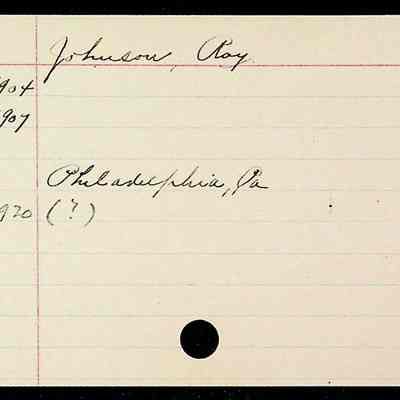 Johnson, Roy
904
907
Philadelphia, Pa
920 (?)